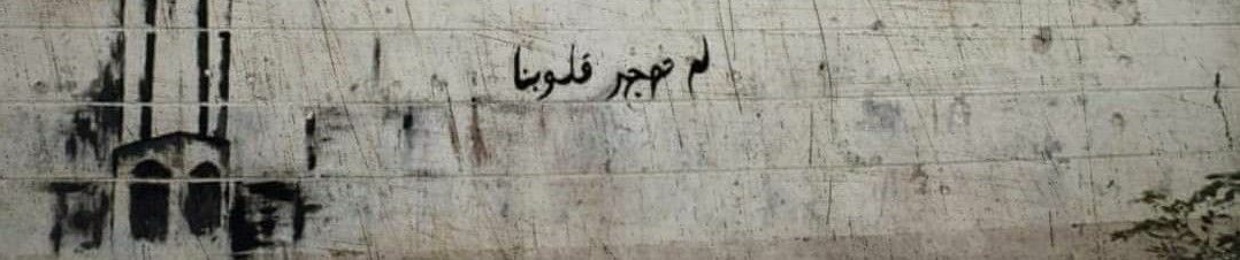 لم تهجر قلوبنا